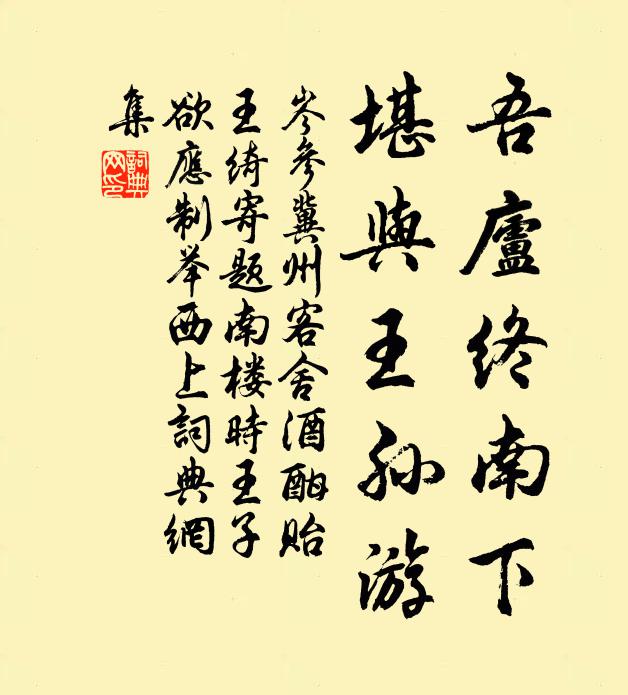 吾廬終南下
堪與王孙游
岑參冀州客舍酒酣貽
王綺寄题南楼時王子
欲應制举西上詞典網
集
詞典網印